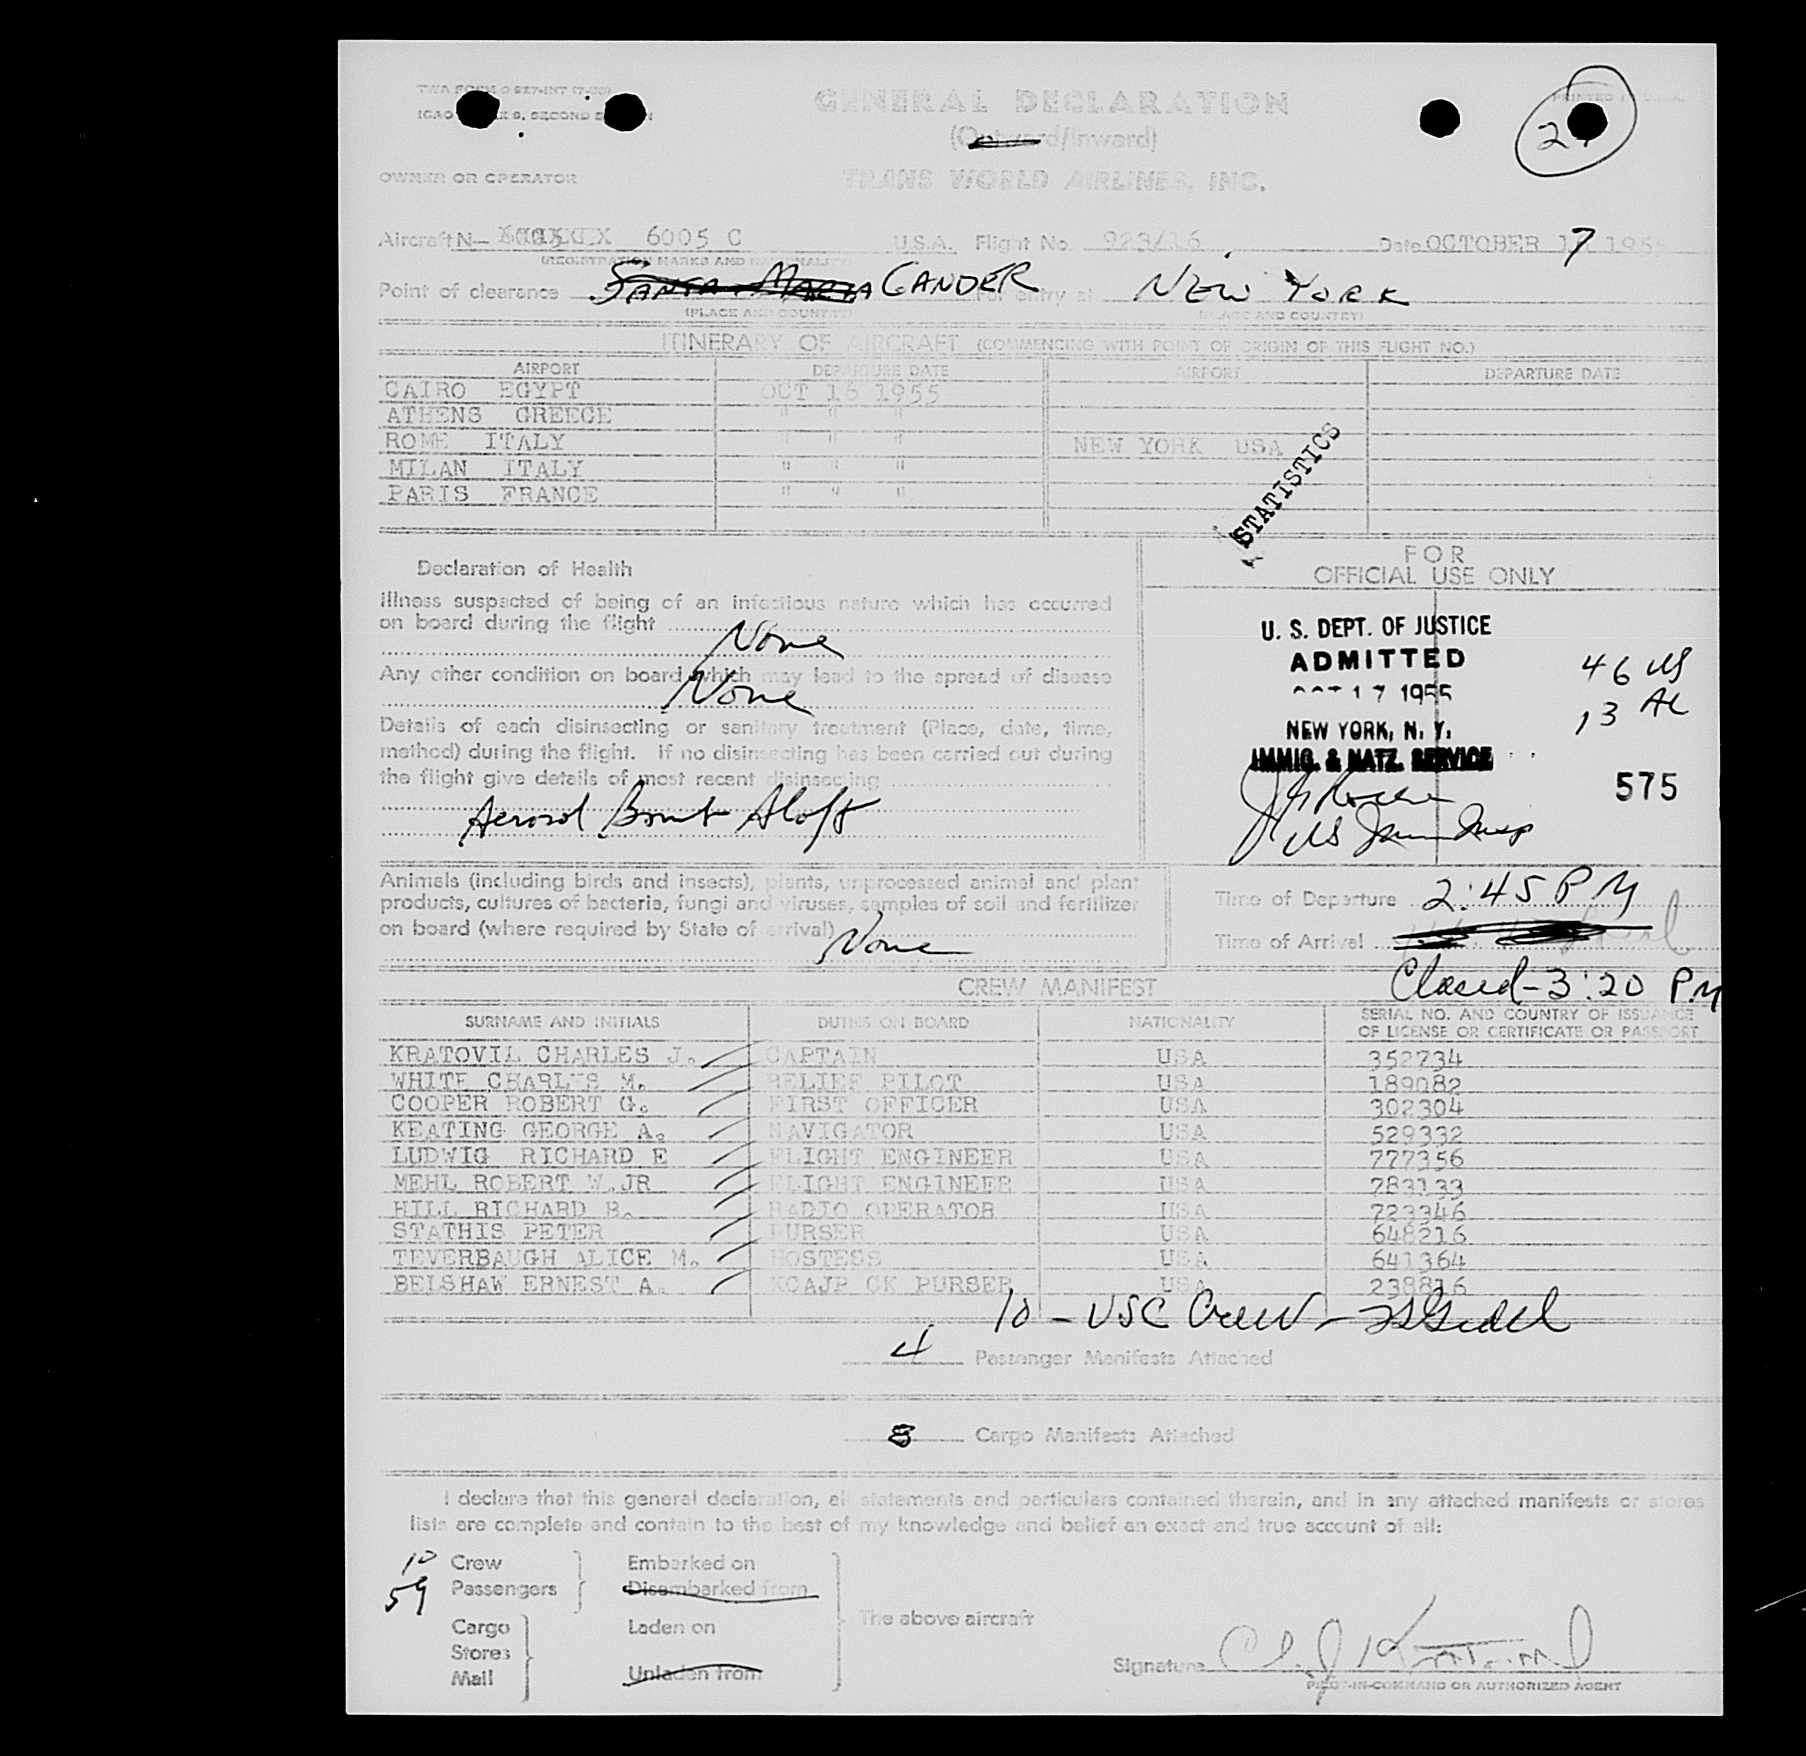 GENERAL DECLARATION
(Outward/Inward)
OWNER OR OPERATOR TRANS WORLD AIRLINES, INC.
2
Aircraft N- 6005 C U.S.A. Flight No. 923/16 Date OCTOBER 17 1955
(REGISTRATION MARKS AND NATIONALITY)
Point of clearance SANTA MARIA GANDER For entry at NEW YORK
(PLACE AND COUNTRY) (PLACE AND COUNTRY)
ITINERARY OF AIRCRAFT (COMMENCING WITH POINT OF ORIGIN OF THIS FLIGHT NO.)
AIRPORT DEPARTURE DATE AIRPORT DEPARTURE DATE
CAIRO EGYPT OCT 16 1955
ATHENS GREECE " " "
ROME ITALY " " " NEW YORK USA
MILAN ITALY " " "
PARIS FRANCE " " "
STATISTICS
FOR
OFFICIAL USE ONLY
Declaration of Health
Illness suspected of being of an infectious nature which has occurred
on board during the flight
None
Any other condition on board which may lead to the spread of disease
None
Details of each disinsecting or sanitary treatment (Place, date, time,
method) during the flight. If no disinsecting has been carried out during
the flight give details of most recent disinsecting
Aerosol Bomb Aloft
U. S. DEPT. OF JUSTICE
ADMITTED
OCT 17 1955
NEW YORK, N. Y.
IMMIG. & NATZ. SERVICE
46 US
13 AL
575
US Imm Insp
Animals (including birds and insects), plants, unprocessed animal and plant
products, cultures of bacteria, fungi and viruses, samples of soil and fertilizer
on board (where required by State of arrival)
None
Time of Departure 2:45 PM
Time of Arrival
Closed-3:20 P.M
CREW MANIFEST
SURNAME AND INITIALS DUTIES ON BOARD NATIONALITY SERIAL NO. AND COUNTRY OF ISSUANCE OF LICENSE OR CERTIFICATE OR PASSPORT
KRATOVIL CHARLES J. CAPTAIN USA 352734
WHITE CHARLES M. RELIEF PILOT USA 189082
COOPER ROBERT G. FIRST OFFICER USA 302304
KEATING GEORGE A. NAVIGATOR USA 529332
LUDWIG RICHARD E FLIGHT ENGINEER USA 777356
MEHL ROBERT W.JR FLIGHT ENGINEER USA 783133
HILL RICHARD B. RADIO OPERATOR USA 723346
STATHIS PETER PURSER USA 648216
TEVERBAUGH ALICE M. HOSTESS USA 641364
BELSHAW ERNEST A. CK PURSER USA 238816
10 - USC Crew -
4 Passenger Manifests Attached
8 Cargo Manifests Attached
I declare that this general declaration, all statements and particulars contained therein, and in any attached manifests or stores
lists are complete and contain to the best of my knowledge and belief an exact and true account of all:
10 Crew
59 Passengers
Embarked on
Disembarked from
Cargo
Stores
Mail
Laden on
Unladen from
The above aircraft
Signature
PILOT-IN-COMMAND OR AUTHORIZED AGENT